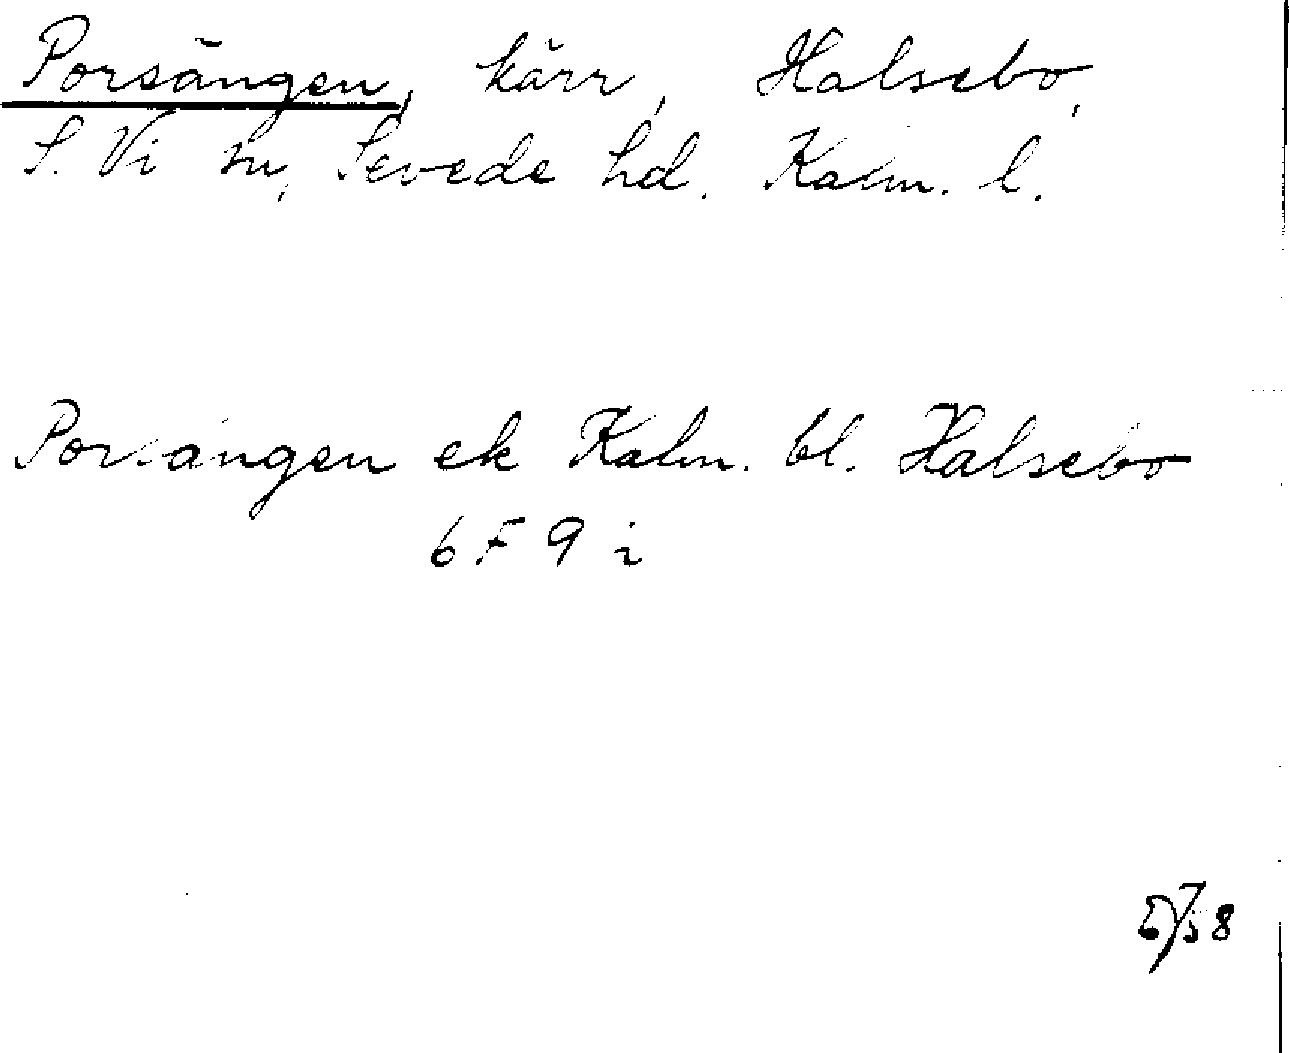 Porsängen, kärr, Halsebo,
S. Vi sn, Sevede hd. Kalm. l.
Porsängen ek Kalm. bl. Halsebo
6 F 9 i